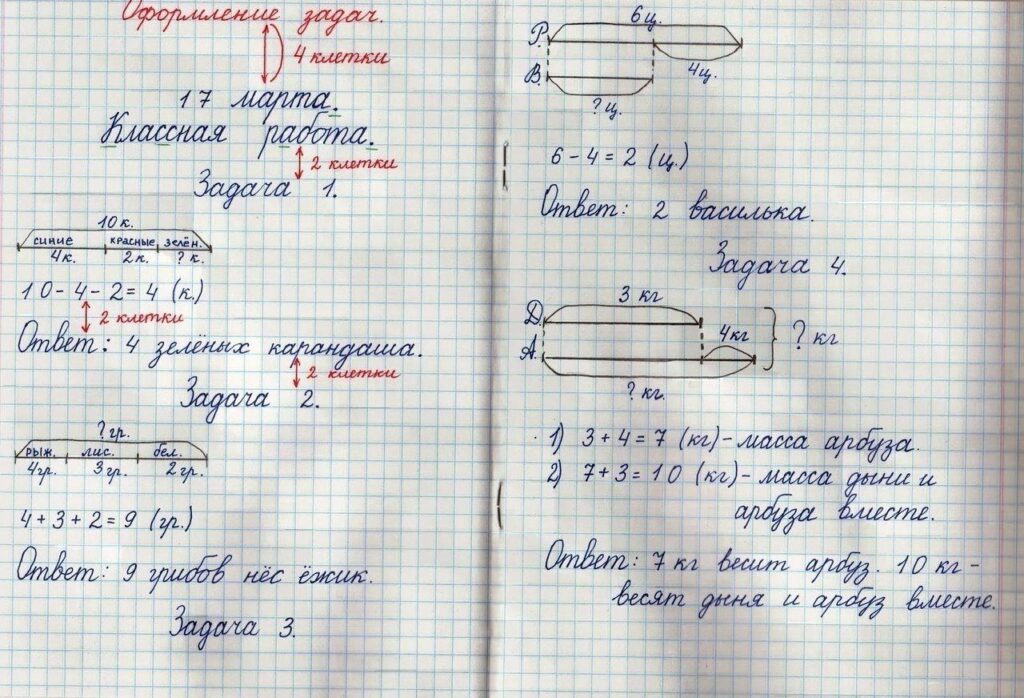 Оформление задач.
4 клетки
17 марта.
Классная работа.
2 клетки
Задача 1.
10 к.
синие красные зелён.
4к. 2к. ? к.
10 - 4 - 2 = 4 (к.)
2 клетки
Ответ: 4 зелёных карандаша.
2 клетки
Задача 2.
? гр.
рыж. лис. бел.
4гр. 3гр. 2гр.
4 + 3 + 2 = 9 (гр.)
Ответ: 9 грибов нёс ёжик.
Задача 3.
6ц.
Р.
4ц.
В.
? ц.
6 - 4 = 2 (ц.)
Ответ: 2 василька.
Задача 4.
3 кг
Д.
4кг ? кг
А.
? кг.
1) 3 + 4 = 7 (кг) - масса арбуза.
2) 7 + 3 = 10 (кг) - масса дыни и
арбуза вместе.
Ответ: 7 кг весит арбуз. 10 кг -
весят дыня и арбуз вместе.